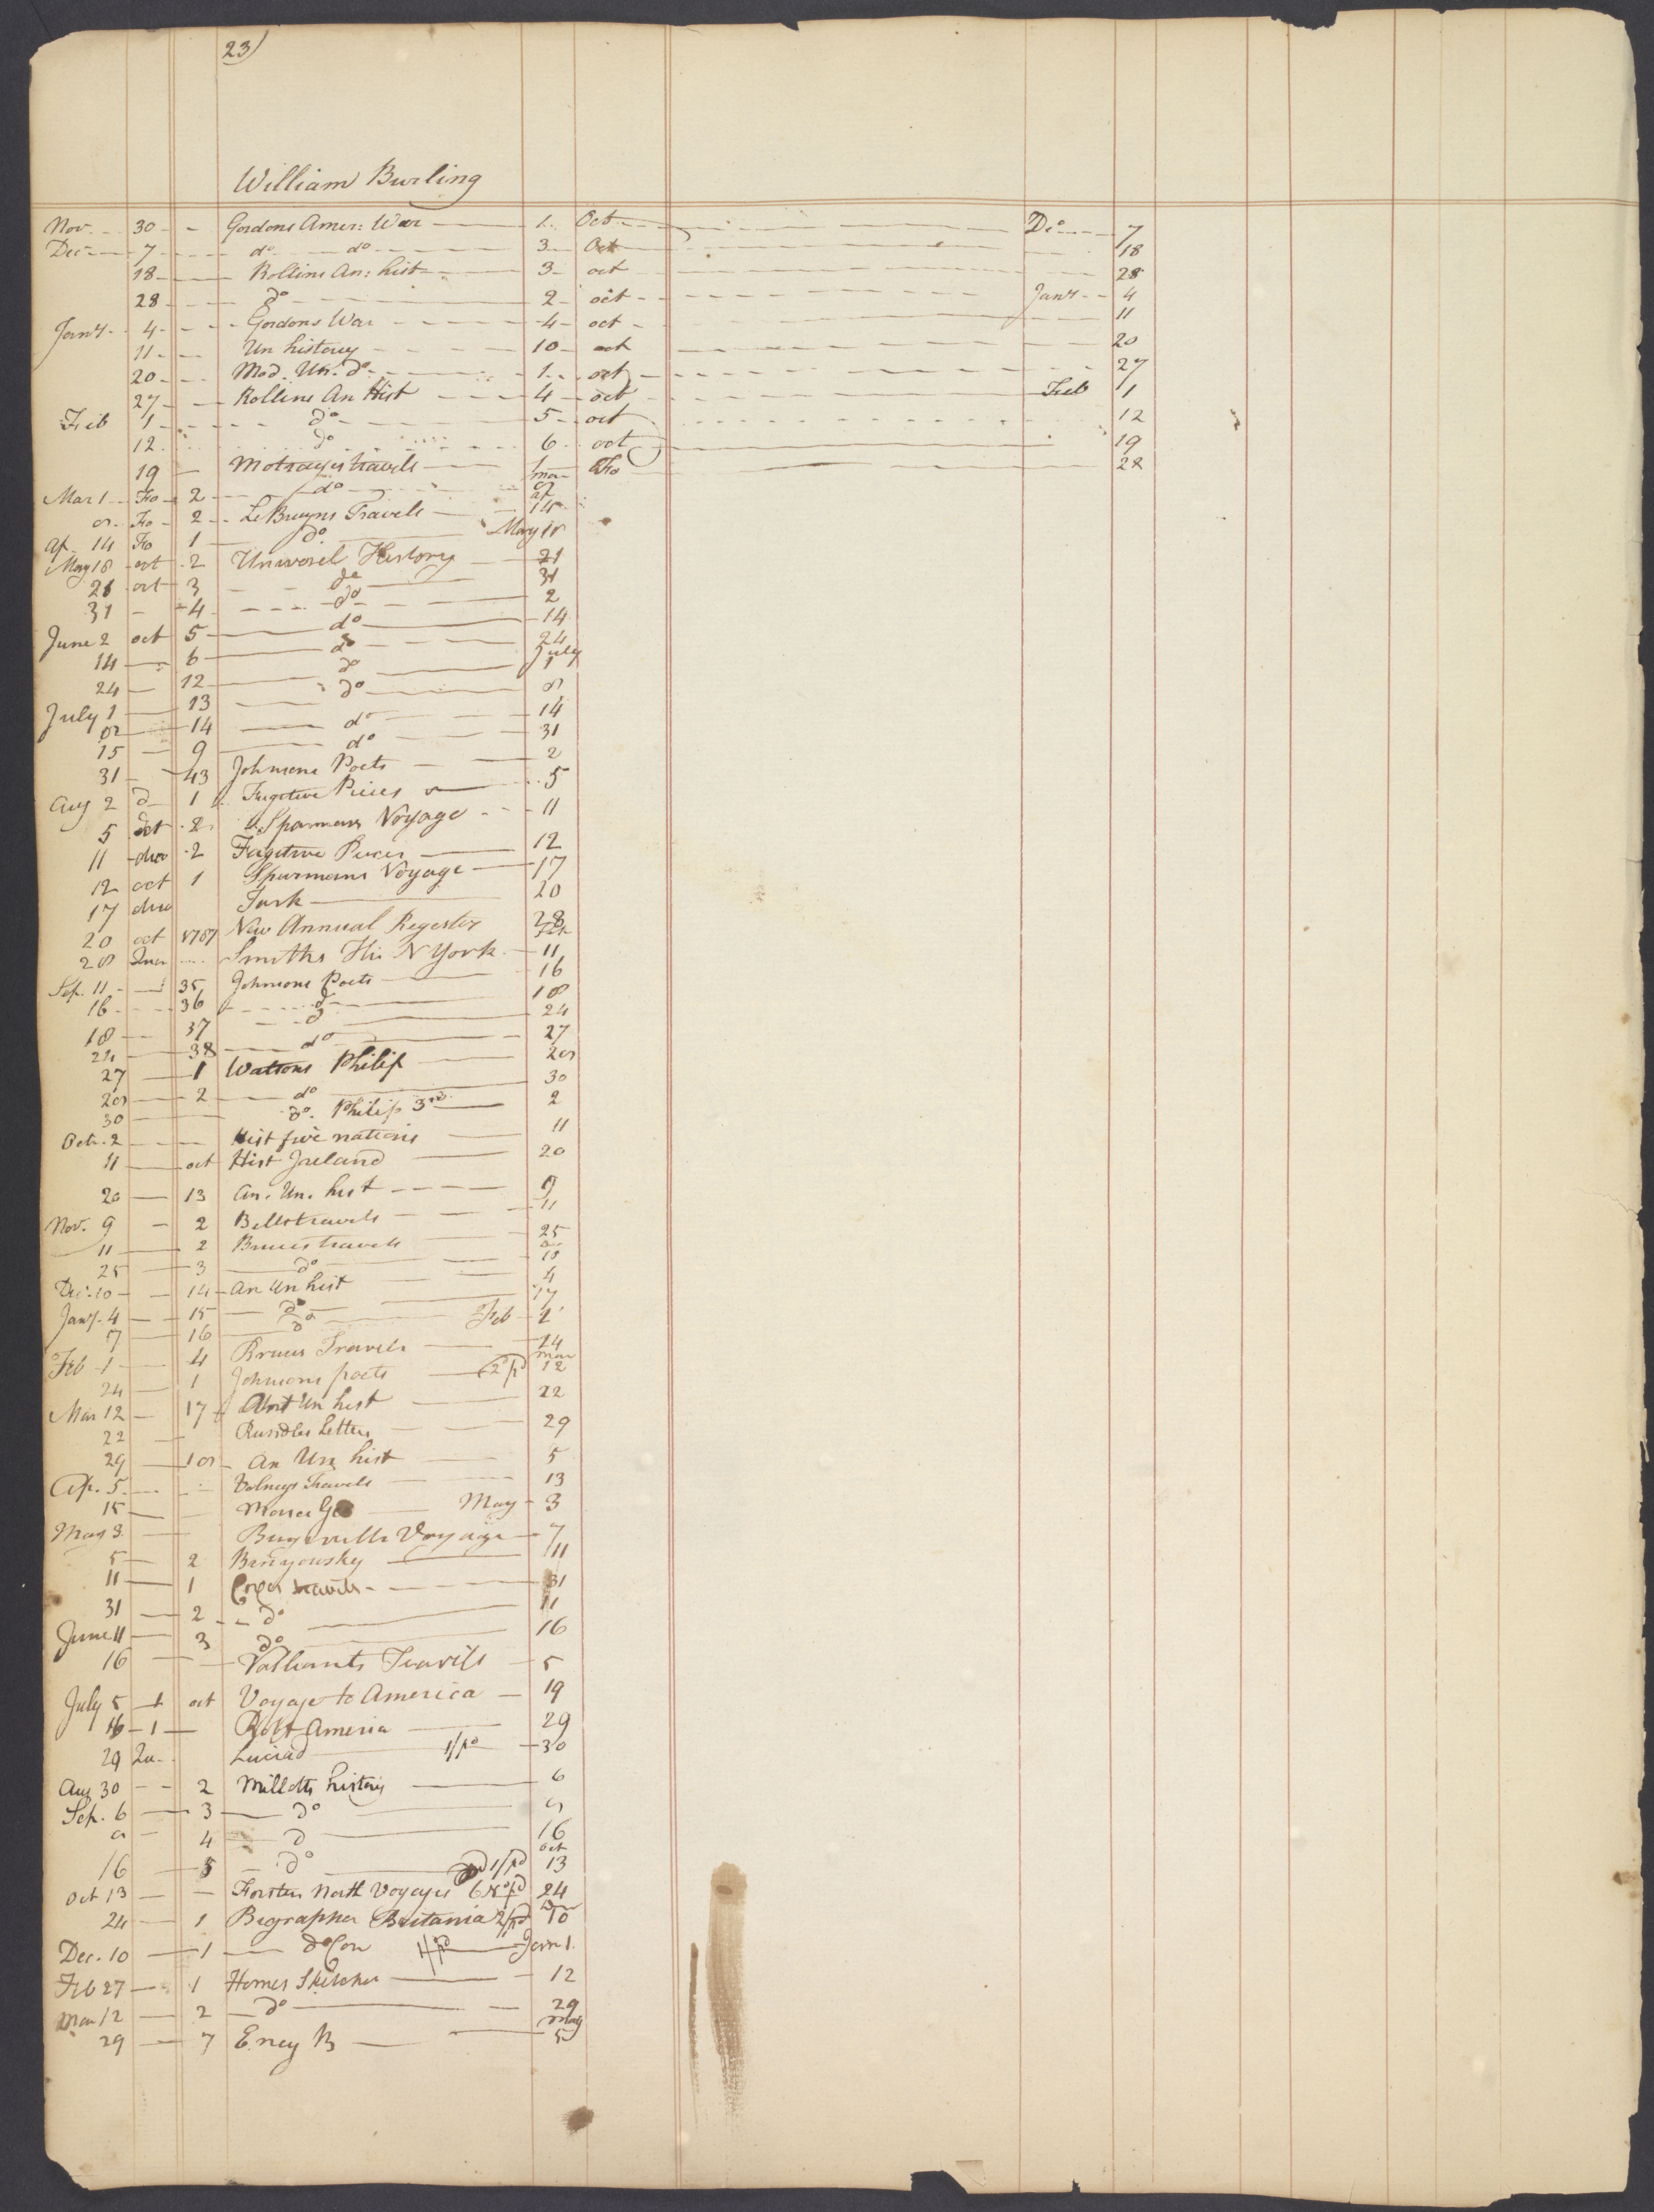 23)
William Burling
Nov. 30 Gordons Amer: War 1. Oct Do 7
Dec 7 do do 3 Oct 18
18 Rollins An: hist 3 oct 28
28 do 2 oct Jany 4
Jany 4 Gordons War 4 oct 11
11 Un history 10 oct 20
20 Mod. Un. do 1 oct 27
27 Rollins An Hist 4 oct Feb 1
Feb 1 do 5 oct 12
12 do 6 oct 19
19 Motrayes travels 1 Fo 28
Mar 1 Fo 2 do mar 8
8 Fo 2 Le Bruyns Travels ap 14
Ap. 14 Fo 1 do May 18
May 18 oct 2 Universel History 21
21 oct 3 do 31
31 4 do 2
June 2 oct 5 do 14
14 6 do 24
24 12 do July 1
July 1 13 do 8
8 14 do 14
15 9 do 31
31 43 Johnsons Poets 2
Aug 2 d 1 Fugitive Pieces 5
5 oct 2 Sparmans Voyage 11
11 duo 2 Fugitive Pieces 12
12 oct 1 Sparmans Voyage 17
17 duo Task 20
20 oct 1787 New Annual Register 28
28 Quar Smiths His N York Sep 11
Sep. 11 35 Johnsons Poets 16
16 36 do 18
18 37 do 24
24 38 do 27
27 1 Watsons Philip 28
28 2 do 30
30 do. Philip 3rd 2
Oct. 2 Hist five nations 11
11 oct Hist Ireland 20
20 13 An. Un. hist 9
Nov. 9 2 Bells travels 11
11 2 Bruces travels 25
25 3 do 10
Dec. 10 14 An Un hist 4
Jany. 4 15 do 17
7 16 do Feb 1
Feb 1 4 Bruces Travels 24
24 1 Johnsons poets 2/pd mar 12
Mar 12 17 Ant Un hist 22
22 Rundles Letters 29
29 18 An Un hist 5
Ap. 5 Volneys Travels 13
15 Morses Geo May 3
May 3 Bugnvills Voyage 7
5 2 Benyowsky 11
11 1 Coxes travels 31
31 2 do 11
June 11 3 do 16
16 Valliants Travils 5
July 5 1 oct Voyage to America 19
16 1 Rolt America 29
29 Qu Luciad 1/pd 30
Aug 30 2 Millotts history 6
Sep. 6 3 do 8
8 4 do 16
16 5 do 1/pd oct 13
Oct 13 Forsters North Voyages 6d pd 24
24 1 Biographia Britania 2/pd Dec 10
Dec. 10 1 do Con 1/pd Jan 1.
Feb 27 1 Homes Sketches 12
Mar 12 2 do 29
29 7 Ency B May 5